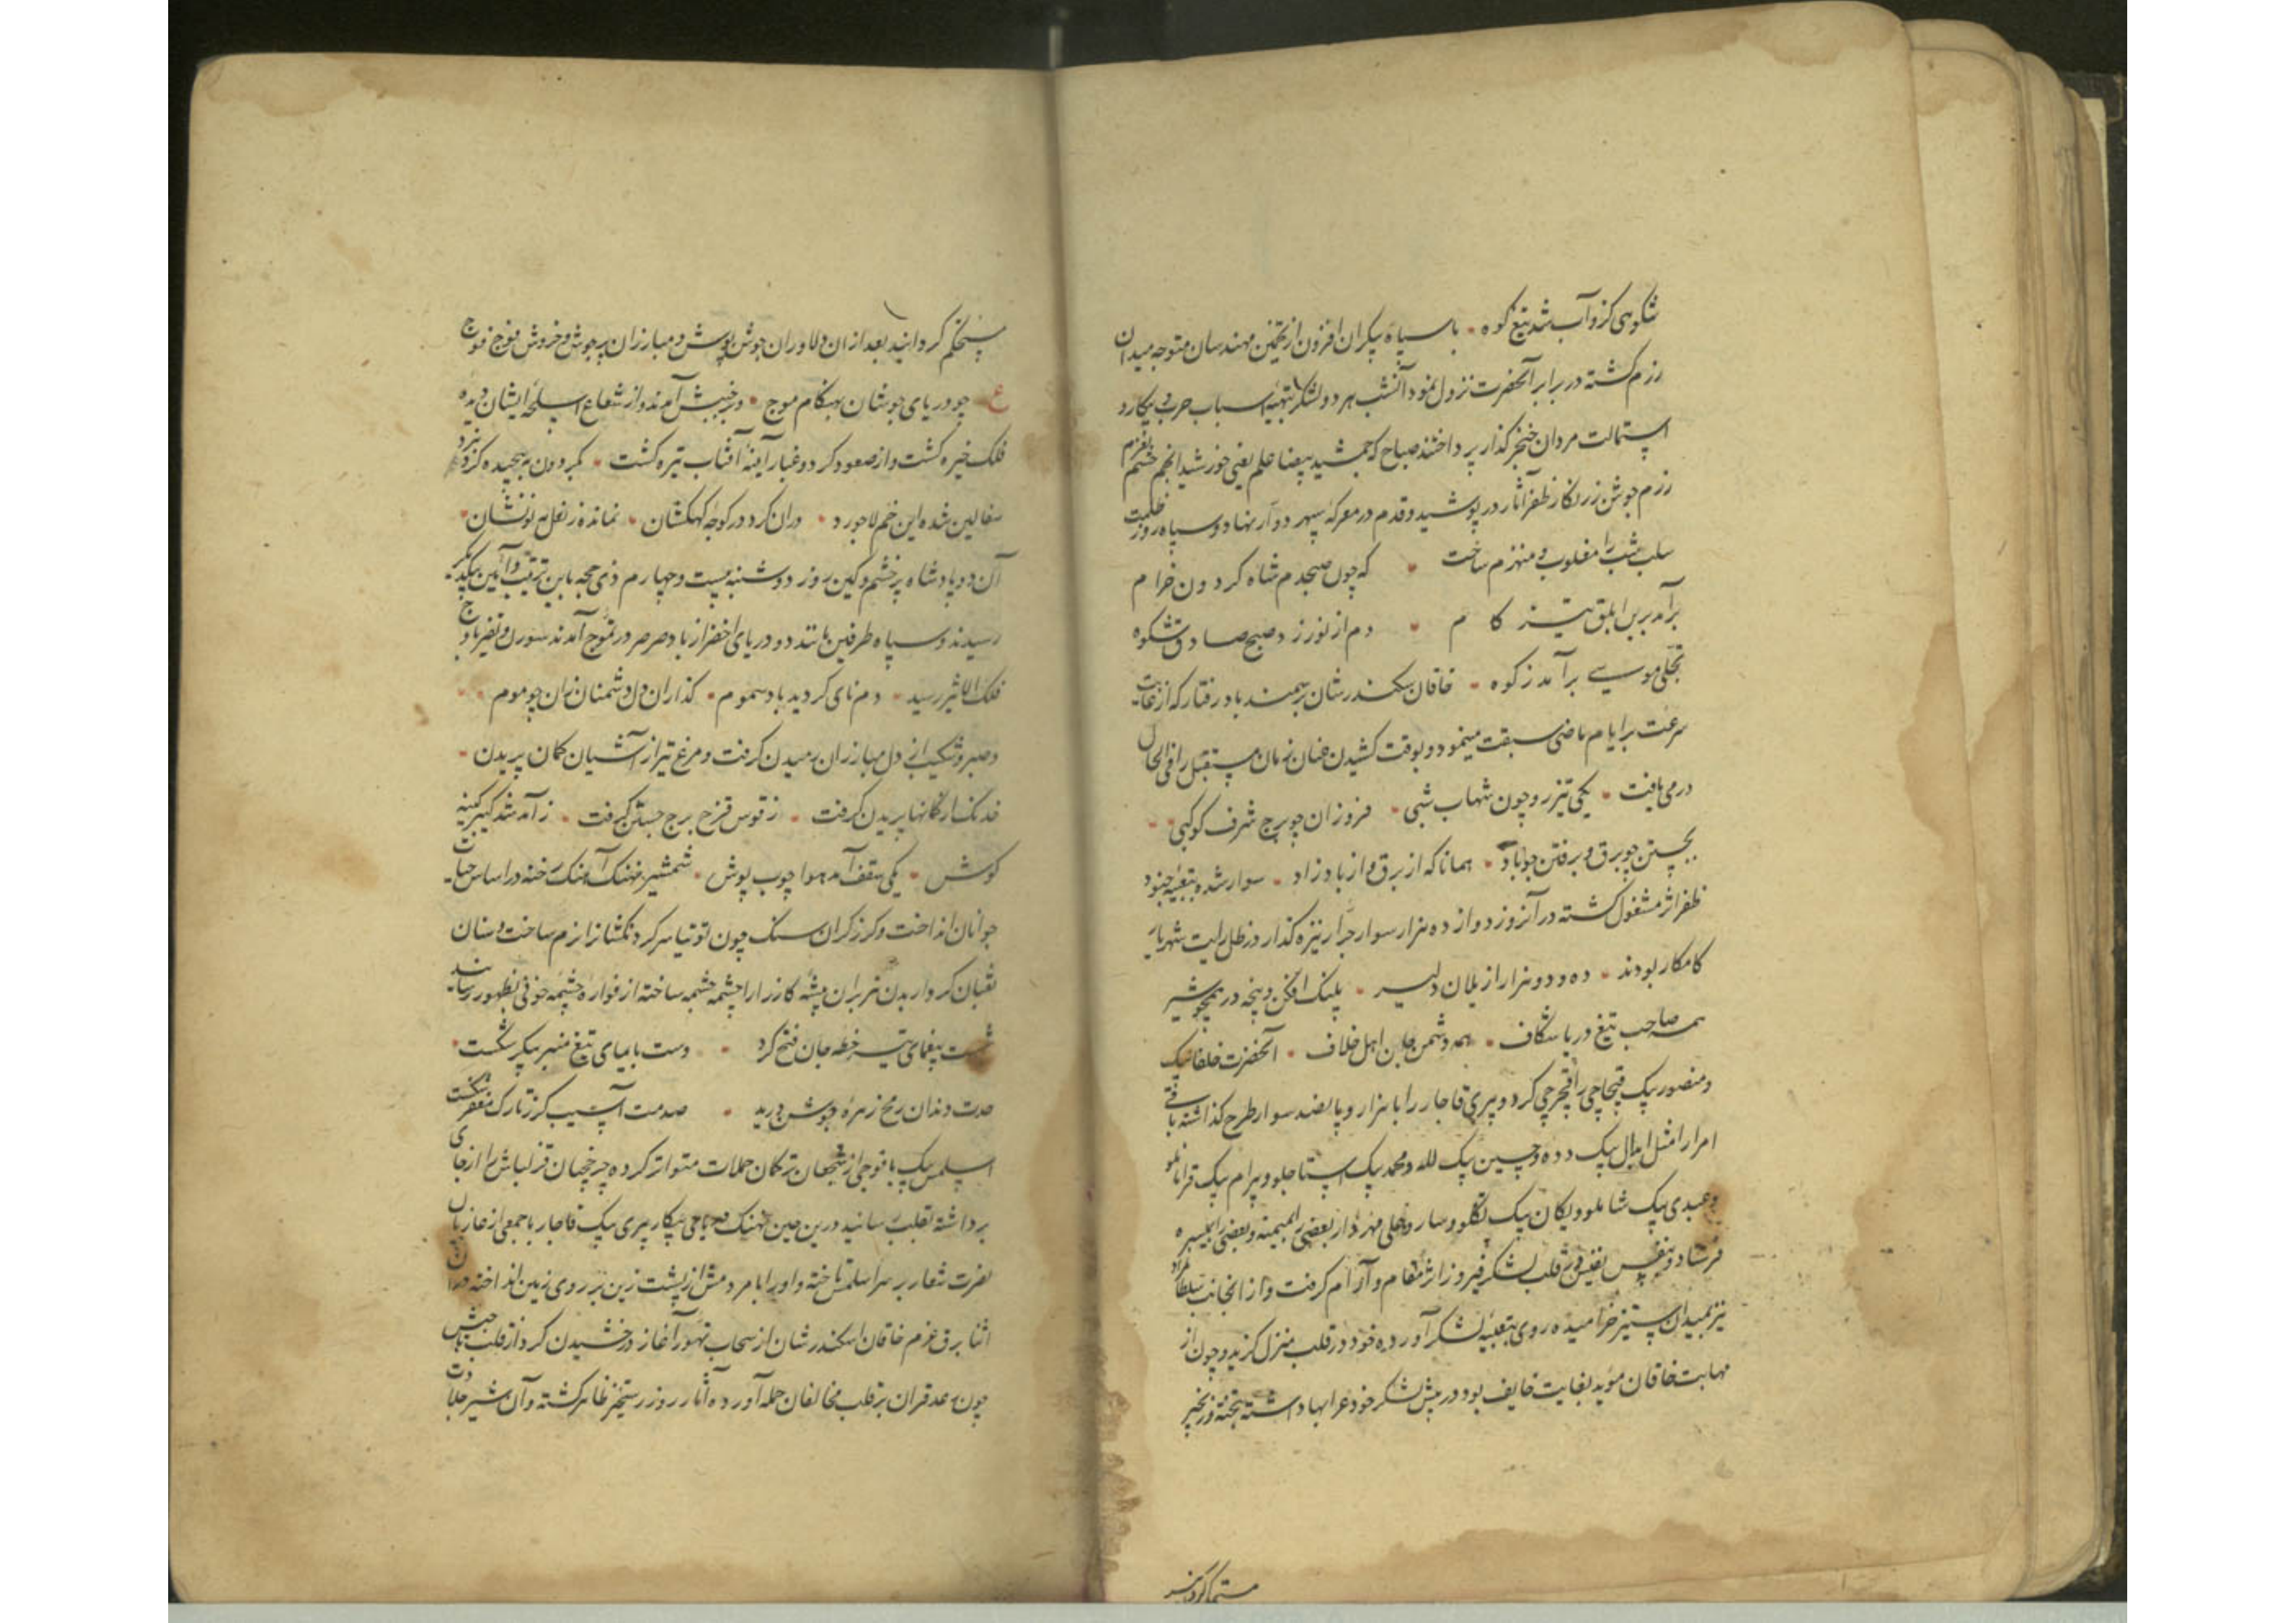 شکوهی کزو آب شد تیغ کوه • با سپاه بیکران افزون از تخمین مهندسان متوجه میدان
رزم گشته در برابر آنحضرت نزول نمود آنشب هر دو لشکر بتهیه اسباب حرب و پیکار و
استمالت مردان خنجر گذار پرداختند صباح که جمشید بیضا علم یعنی خورشید انجم حشم بعزم
رزم جوشن زرنگار ظفر آثار در پوشید و قدم در معرکه سپهر دوار نهاد و سپاه روز ظلمت
سلب شب را مغلوب و منهزم ساخت • که چون صبحدم شاه گردون خرام
برآمد برین ابلق تیز کام • دم از نور زد صبح صادق شکوه
تجلی موسی برآمد ز کوه • خاقان سکندرشان بر سمند باد رفتار که از غایت
سرعت بر ایام ماضی سبقت مینمود و بوقت کشیدن عنان زمان مستقبل را فی الحال
در می یافت • یکی تیزرو چون شهاب شبی • فروزان چو برج شرف کوکبی •
بجستن چو برق و برفتن چو باد • همانا که از برق و از باد زاد • سوار شده بتعبیه جنود
ظفر اثر مشغول گشته در آنروز دوازده هزار سوار جرار نیزه گذار در ظل رایت شهریار
کامکار بودند • ده و دو هزار از یلان دلیر • پلنگ افکن و پنجه در همچو شیر
همه صاحب تیغ دریا شکاف • همه دشمن جان اهل خلاف • آنحضرت خلفا بیک
و منصور بیک قبچاجی را قچرچی کرد و پیری قاجار را با هزار و پانصد سوار طرح گذاشته باقی
امرا را مثل ابدال بیک دده و حسین بیک لله و محمد بیک استاجلو و بیرام بیک قرامانلو
و عبدی بیک شاملو و یکان بیک تکلو و ساروعلی مهردار بعضی را بمیمنه و بعضی را بمیسره
فرستاد و بنفس نفیس در قلب لشکر فیروز اثر مقام و آرام گرفت و از انجانب سلطان مراد
نیز بمیدان ستیز خرامیده روی بتعبیه لشکر آورده خود در قلب منزل گزید و چون از
مهابت خاقان مؤید بغایت خایف بود در پیش لشکر خود عرابها داشته بتخته و زنجیر
مستحکم گردانید
مستحکم گردانید بعد از ان دلاوران جوشن پوش و مبارزان پر جوش و خروش فوج فوج
ع چو دریای جوشان بهنگام موج • در جنبش آمدند و از شعاع اسلحه ایشان دیده
فلک خیره گشت و از صعود گرد و غبار آینه آفتاب تیره گشت • بگردون بپیچیده گرد نبرد
سفالین شده این خم لاجورد • دران گرد در کوچه کهکشان • نمانده ز نعل مه نو نشان •
آن دو پادشاه پر خشم و کین روز دوشنبه بیست و چهارم ذی حجه باین ترتیب و آیین بیکدیگر
رسیدند و سپاه طرفین مانند دو دریای اخضر از باد صرصر در تموج آمدند سورن و نفیر باوج
فلک الاثیر رسید • دم نای گردید باد سموم • گدازان دل دشمنان زان چو موم •
و صبر و شکیب از دل مبارزان رمیدن گرفت و مرغ تیر از آشیان کمان پریدن •
خدنگ از کمانها پریدن گرفت • ز قوس قزح برج جستن گرفت • ز آمد شد تیر کینه
کوش • یکی سقف آمد هوا چوب پوش • شمشیر نهنگ آهنگ رخنه در اساس حیات
جوانان انداخت و گرز گران سنگ چون توتیا سر گردنکشانرا نرم ساخت و سنان
ثعبان کردار بدن هزبران بیشه کارزار را چشمه چشمه ساخته از فواره چشمه خونی بظهور رسانید
شست بیغمای تیر خطه جان فتح کرد • دست بایمای تیغ منبر پیکر شکست •
حدت دندان رمح زهره جوشن درید • صدمت آسیب گرز تارک مغفر شکست
اسلمس بیک با فوجی از شجعان ترکمان حملات متواتر کرده چرخچیان قزلباش را از جای
برداشته بقلب رسانید درین حین نهنگ دریای پیکار پیری بیک قاجار با جمعی از غازیان
نصرت شعار بر سر اسلمش تاخته و او را با مردمش از پشت زین بر روی زمین انداخته در این
اثنا برق عزم خاقان اسکندرشان از سحاب تهور آغاز درخشیدن کرد از قلب با جیش
چون رعد غران بر قلب مخالفان حمله آورده آثار روز رستخیز ظاهر گشته و آن شیر جلادت